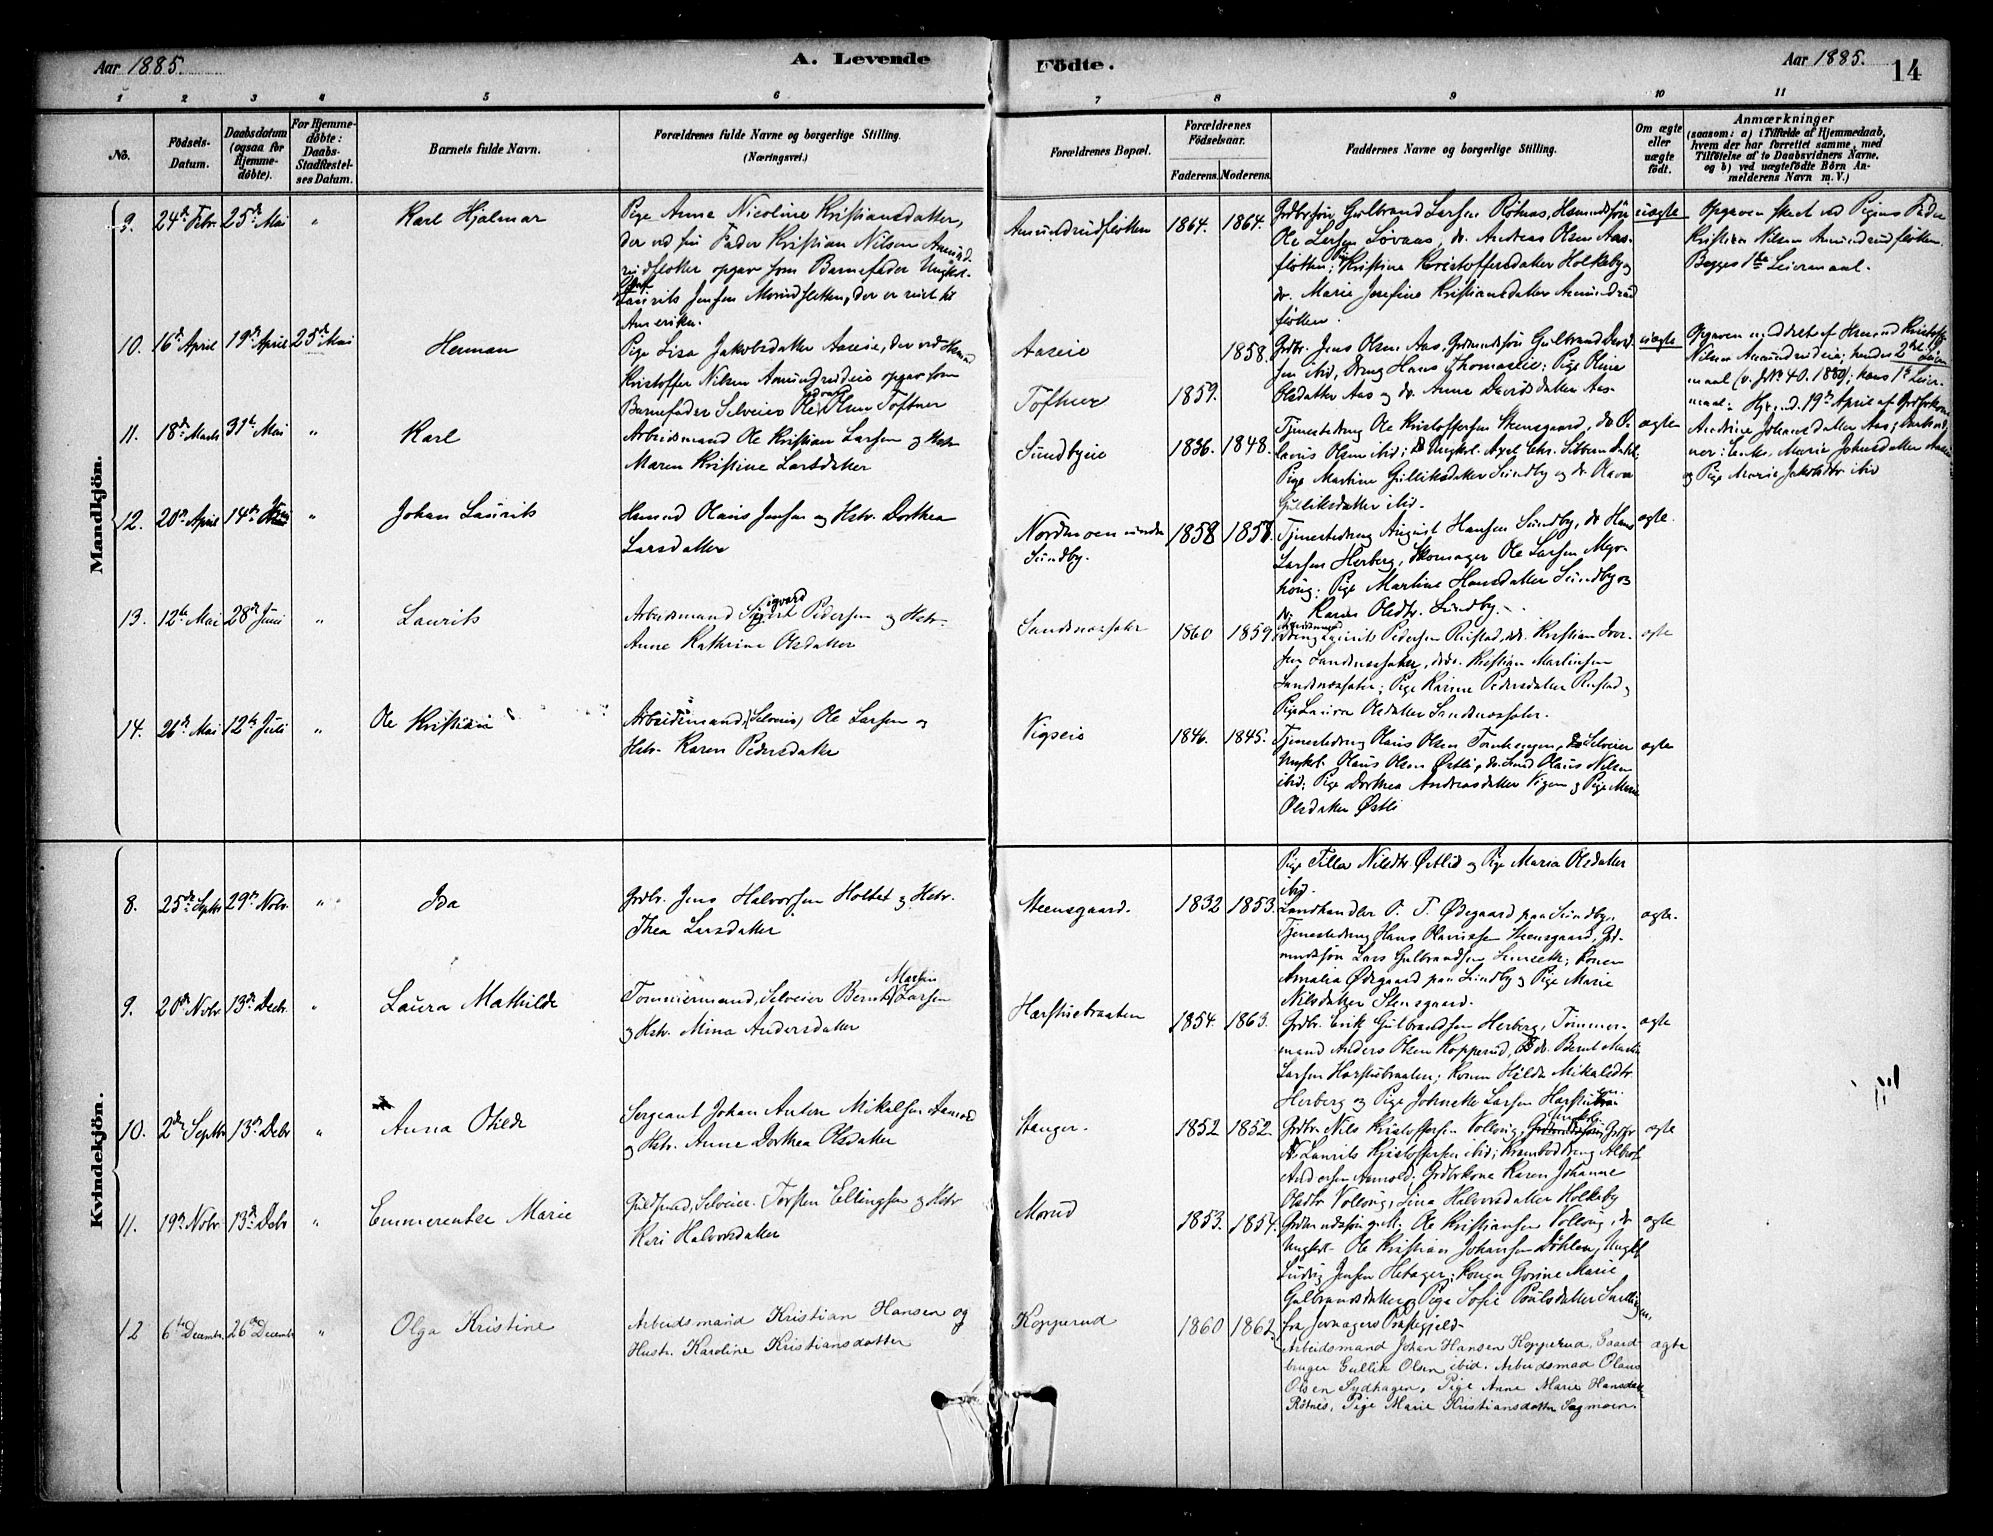 Aar 1885.
A. Levende
Födte.
Aar 1885.
14
1 2 3 4 5 6 7 8 9 10 11
No.
Födsels-
Datum.
Daabsdatum
(ogsaa för
Hjemme-
døbte).
For Hjemme-
döbte:
Daabs-
Stadfæstel-
ses Datum.
Barnets fulde Navn.
Forældrenes fulde Navne og borgerlige Stilling.
(Næringsvei.)
Forældrenes Bopæl.
Forældrenes
Födselsaar.
Faderens. Moderens.
Faddernes Navne og borgerlige Stilling.
Om ægte
eller
uægte
födt.
Anmærkninger
(saasom: a) i Tilfælde af Hjemmedaab,
hvem der har forrettet samme, med
Tilföielse af to Daabsvidners Navne,
og b) ved uægtefödte Börn An-
melderens Navn m. V.)
Mandkjön.
9. 24de Febr. 25de Mai " Karl Hjalmar
Pige Anna Nicoline Kristiansdatter,
der ved sin Fader Kristian Nilsen Amund-
rudfløtten opgav som Barnefader Ungk.
Laurits Jensen Morudfløtten, der er reist til
Amerika.
Amundrudfløtten 1864. 1864.
Grdbrsøn Gulbrand Larsen Rötnes, Husmdssøn
Ole Larsen Løvaas, do. Andreas Olsen Aas-
fløtten; Pige Kristine Kristoffersdatter Holkeby og
do. Marie Josefine Kristiansdatter Amundrud
fløtten.
uægte
Opgaven skeet ved Pigens Fader
Kristian Nilsen Amundrudfløtten.
Begges 1ste Leiermaal.
10. 16de April 19de April 25de Mai Herman
Pige Lisa Jakobsdatter Aaseie, der ved Husmd
Kristoffer Nilsen Amundrudeie opgav som
Barnefader Selveier Ole Olsen Toftner
Aaseie 1858.
Tofhner 1859.
Grdbr. Jens Olsen Aas, Grdmandssøn Gulbrand David-
sen ibid, Dreng Hans Thomaseie; Pige Oline
Olsdatter Aas og do. Anne Davidsdatter Aas.
uægte
Opgaven meddelt af Husmd Kristoffer
Nilsen Amundrudeie; hendes 2det Leier-
maal (v. J№ 40. 1880); hans 1ste Leier-
maal. Hjd. 19de April af Grdbrkone
Andrine Johansdatter Aas; Daabsvid-
ner: Enke Marie Johnsdatter Aaseie
og Pige Maria Jakobsdtr ibid
11. 18de Marts 31te Mai " Karl
Arbeidsmand Ole Kristian Larsen og Hstr.
Maren Kristine Larsdatter
Sundbyeie 1836. 1848.
Tjenestedreng Ole Kristoffersen Steensgaard, do
Lauris Olsen ibid; Ungkl. Axel Chr. Sibbern Dahl
Pige Martine Gulliksdatter Sundby og do.
Gulliksdatter ibid.
ægte
12. 20de April 14de Juni " Johan Laurits
Husmd Olaus Jensen og Hstr. Dorthea
Larsdatter
Nordmoen under
Sundby. 1858 1858.
Tjenestedreng August Hansen Sundby, do Hans
Larsen Herberg, Skomager Ole Larsen Myr-
houg; Pige Martine Hansdatter Sundby og
do Karen Olsdtr. Sundby.
ægte.
13. 12te Mai 28de Juni " Laurits
Arbeidsmand Sigvard Pedersen og Hstr.
Anne Kathrine Olsdatter
Sandnæssæter 1860 1859
Arbeidsmand Laurits Pedersen Rustad, do. Kristian Iver-
sen Sandnæssæter, do. Kristian Martinsen
Sandnæssæter; Pige Karine Pedersdatter Rustad og
Pige Laura Olsdatter Sandnæssæter.
ægte
14. 26de Mai 12te Juli " Ole Kristian
Arbeidsmand (Selveier) Ole Larsen og
Hstr. Karen Pedersdatter
Vigseie 1846. 1845.
Tjenestedreng Olaus Olsen Tomhengen, Selveier
Ungkl. Olaus Olsen Østli, do. Olaus Nilsen
ibid; Pige Dorthea Andreasdatter Vigen og Pige Marie
Olsdatter Østli
ægte
Kvindekjön.
8. 25de Septbr 29de Novbr. " Ida
Grdbr. Jens Halvorsen Holtet og Hstr.
Thea Larsdatter
Steensgaard. 1832 1853.
Pige Tilla Nilsdtr. Østlid og Pige Maria Olsdatter
ibid.
Landhandler O. T. Ødegaard paa Sundby,
Tjenestedreng Hans Olaussen Steensgaard, Grd-
mandssøn Lars Gulbrandsen; Konen
Amalia Ødegaard paa Sundby og Pige Marie
Nilsdatter Stensgaard.
ægte.
9. 20de Novbr 13de Decbr. " Laura Mathilde
Tømmermand, Selveier Bernt Martin Larsen
og Hstr. Mina Andersdatter
Harstuebraaten 1854. 1863.
Grdbr. Erik Gulbrandsen Herberg, Tømmer-
mand Anders Olsen Kopperud, do. Bernt Martin
Larsen Harstubraaten; Konen Hilda Mikalsdtr.
Herberg og Pige Johnette Larsen Harstubraa
ægte
10. 2den Septbr 13de Debr " Anna Otilde
Sergeant Johan Anton Mikalsen Aamod
og Hstr. Anne Dorthea Olsdatter
Stanger. 1852 1852
Grdbr. Nils Kristoffersen Vollaug, Ungkl.
Laurits Kristoffersen ibid; Krambodreng Albert
Andersen Arnold; Grdbrkone Karen Johanne
Olsdtr Vollaug, Lina Halvorsdatter Holkeby
ægte
11. 19de Novbr 13de Debr " Emmerentse Marie
Selveier Torsten Ellingsen og Hstr
Kari Halvorsdatter
Morud 1853. 1854.
Grdmandssøn Ole Kristiansen Vollaug, do.
Ungkl. Ole Kristian Johansen Döhlen, Ungkl
Ludvig Jensen Hebager; Konen Gorine Marie
Gulbrandsdatter og Pige Sofie Poulsdatter
fra Jevnagers Præstegjeld.
ægte
12 6te Decembr. 26de Decembr " Olga Kristine
Arbeidsmand Kristian Hansen og
Hustr. Karoline Kristiansdatter
Kopperud 1860 1862
Arbeidsmand Johan Hansen Kopperud, Gaard-
bruger Gullik Olsen ibid. Arbeidsmad Olaus
Olsen Sydhagen, Pige Anne Marie Hansdatter
Rötnes, Pige Marie Kristiansdatter Sagmoen.
ægte